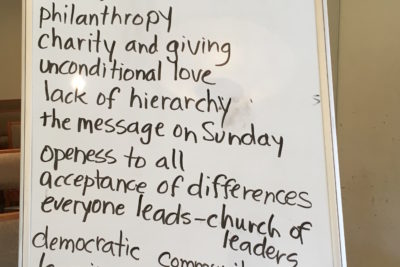 philanthropy
charity and giving
unconditional love
lack of hierarchy
the message on Sunday
openess to all
acceptance of differences
everyone leads-church of
leaders
democratic